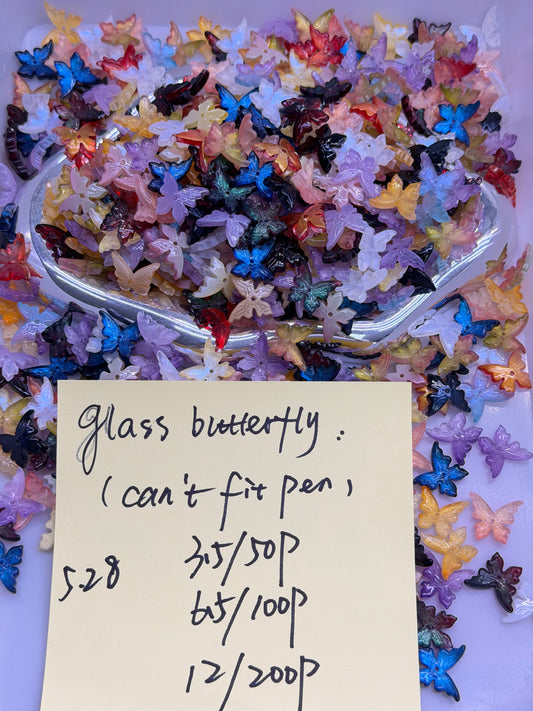 glass butterfly.
(can't fit pen)
5.28
3.5/50P
6.5/100P
12/200P